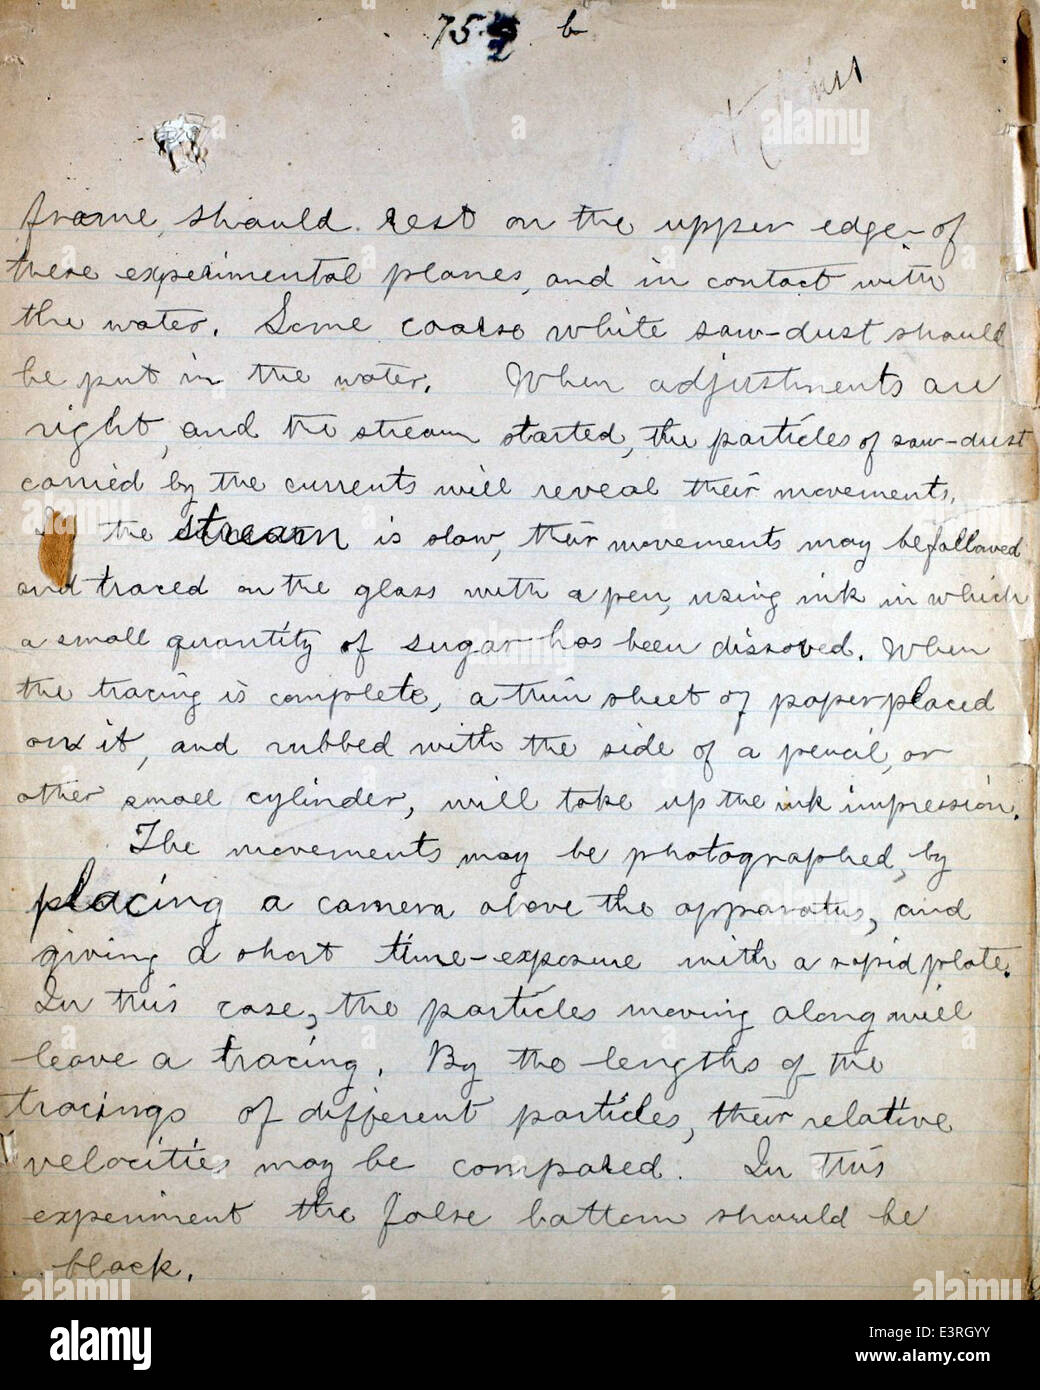 75 2 b
frame, should rest on the upper edge of
these experimental planes, and in contact with
the water. Some coarse white saw-dust should
be put in the water. When adjustments are
right, and the stream started, the particles of saw-dust
carried by the currents will reveal their movements.
the stream is slow, their movements may be followed
and traced on the glass with a pen, using ink in which
a small quantity of sugar has been dissoved. When
the tracing is complete, a thin sheet of paper placed
on it, and rubbed with the side of a pencil, or
other small cylinder, will take up the ink impression.
The movements may be photographed, by
placing a camera above the apparatus, and
giving a short time-exposure with a rapid plate.
In this case, the particles moving along will
leave a tracing. By the lengths of the
tracings of different particles, their relative
velocities may be compared. In this
experiment the false bottom should be
black.
alamy
Image ID: E3RGYY
www.alamy.com